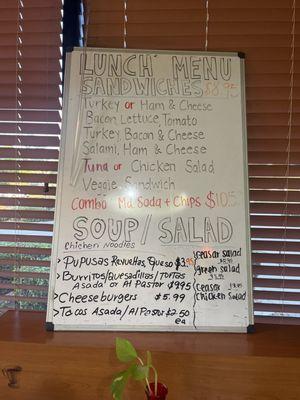 LUNCH MENU
SANDWICHES $8.95
Turkey or Ham & Cheese
Bacon Lettuce, Tomato
Turkey, Bacon & Cheese
Salami, Ham & Cheese
Tuna or Chicken Salad
Veggie Sandwich
Combo Md Soda + Chips $10.5
SOUP/SALAD
Chicken Noodles
>Pupusas Revueltas, Queso $3.95
>Burritos/Quesadillas/Tortas
Asada or Al Pastor $9.95
>Cheeseburgers $5.99
>Tacos Asada/Al Pastor $2.50
ea
Ceasar salad
green salad
Ceasar
Chicken Salad